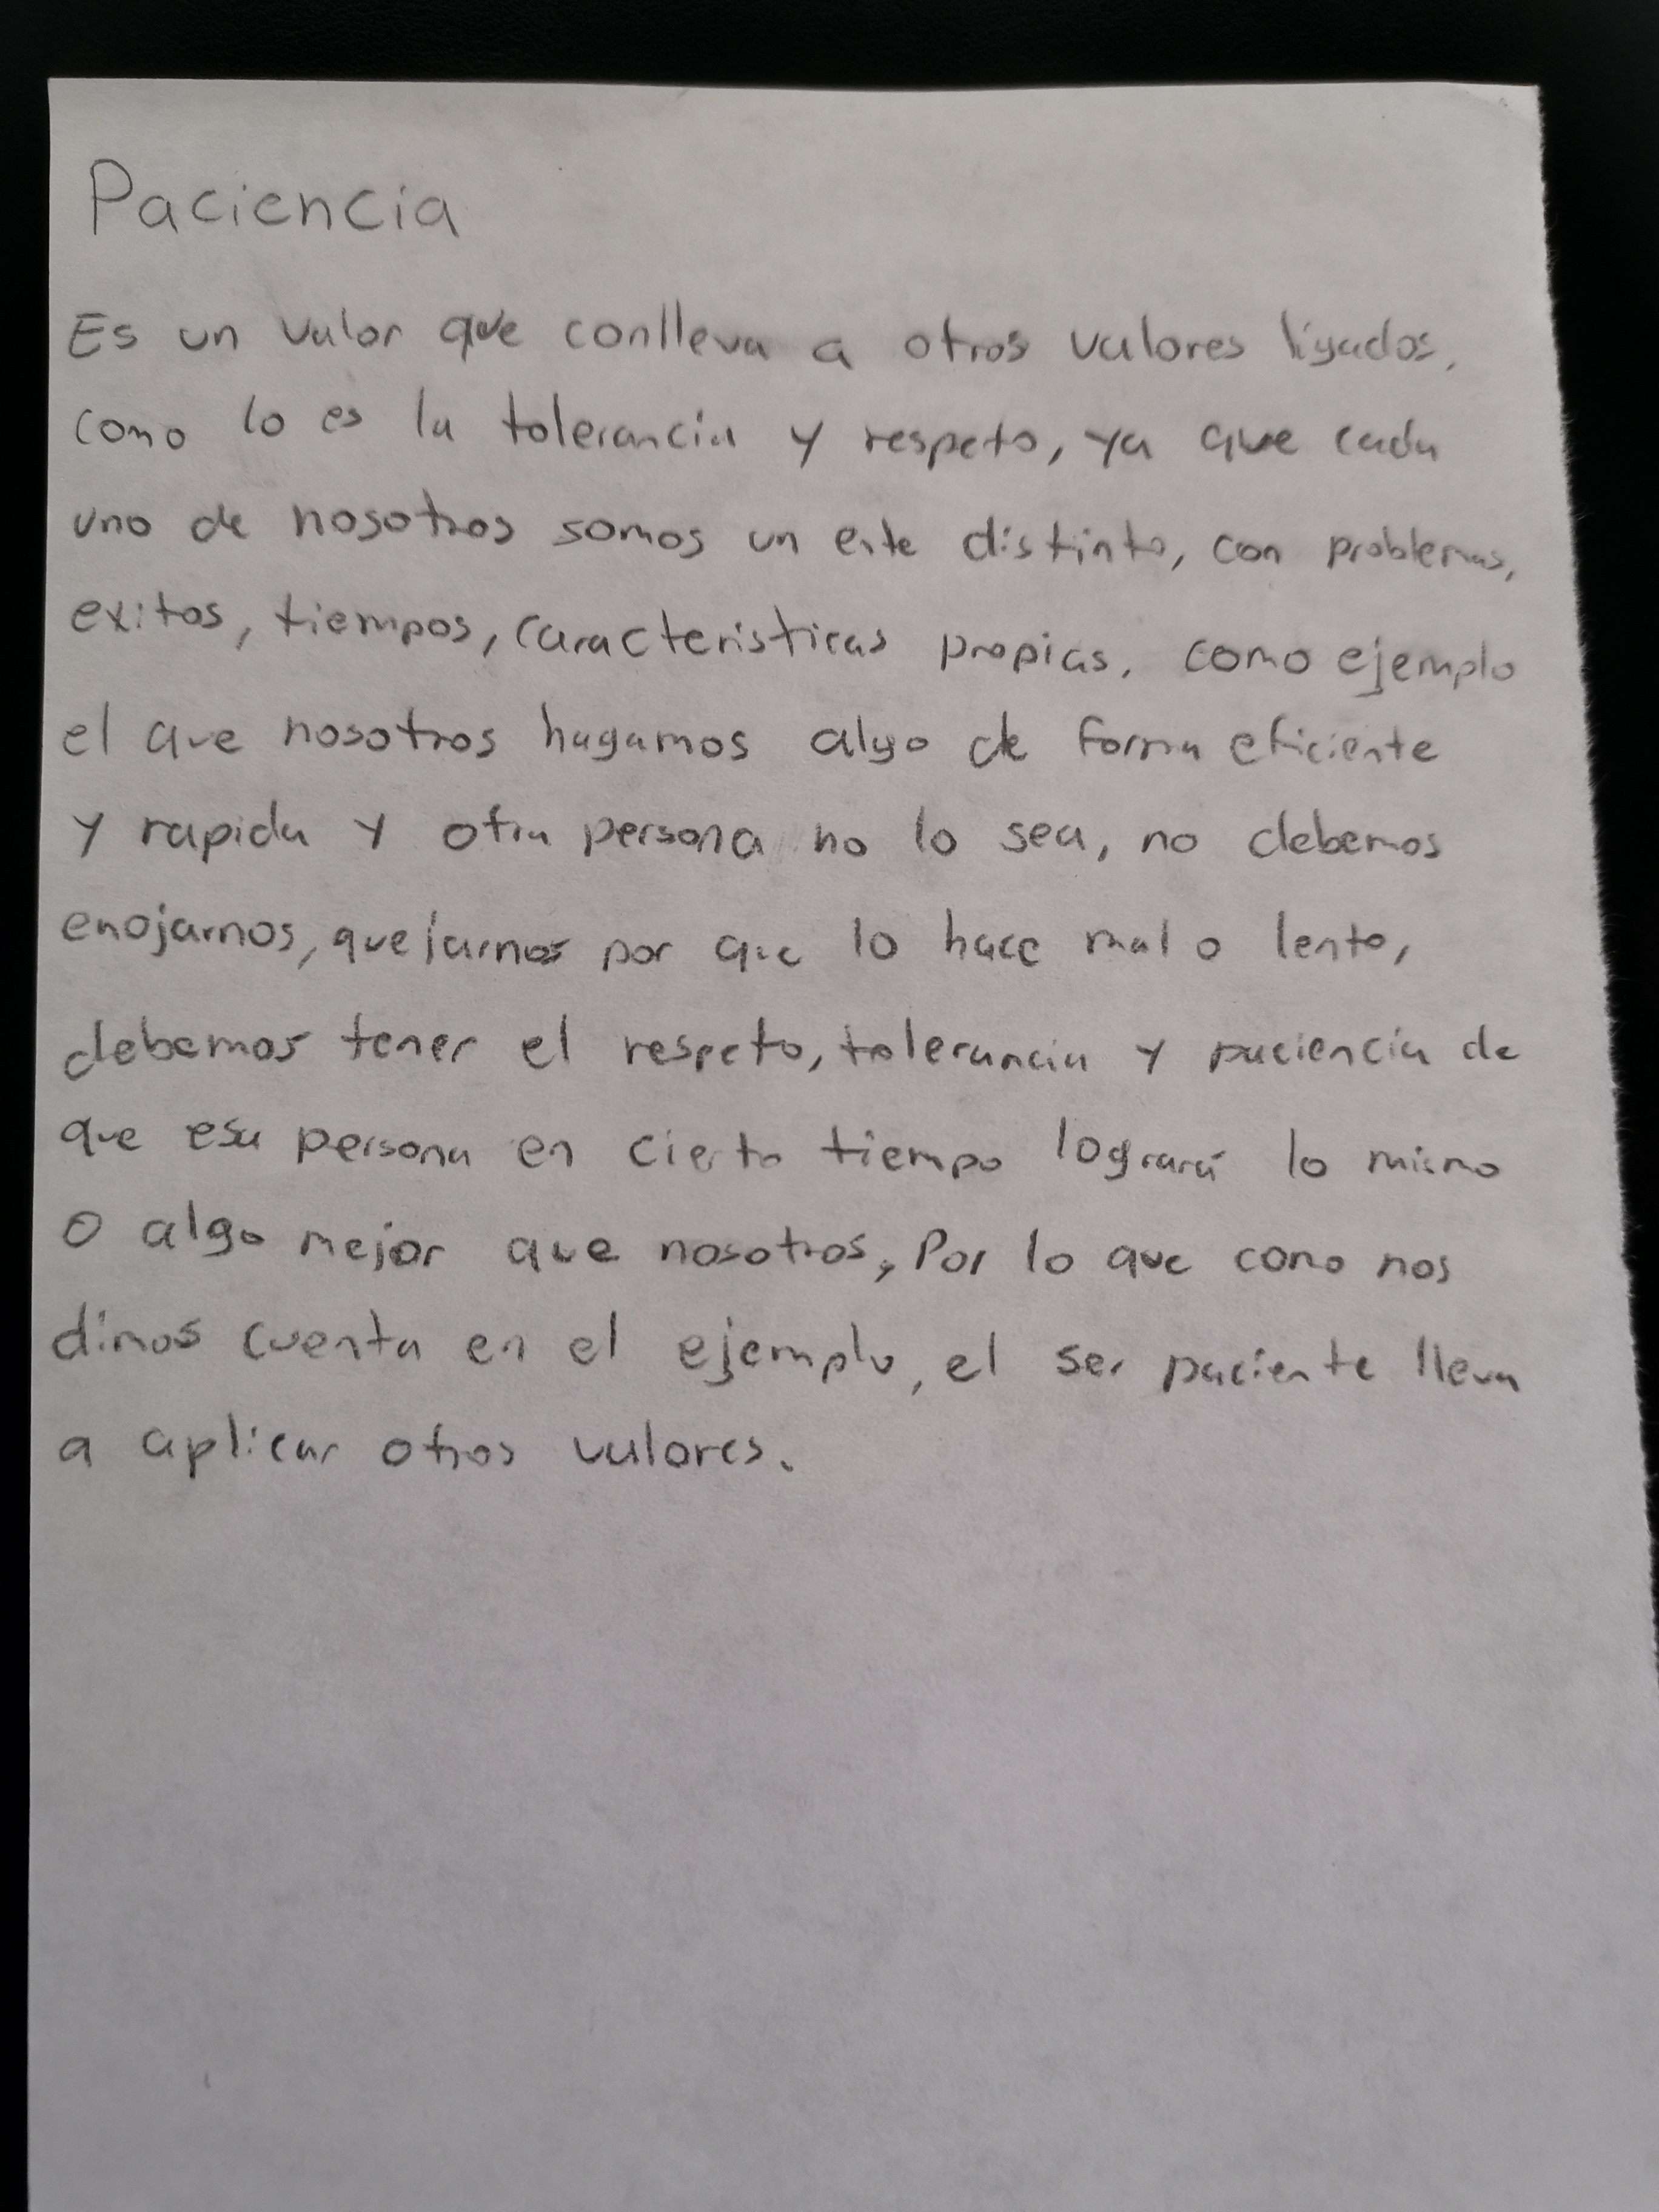 Paciencia
Es un valor que conlleva a otros valores ligados,
como lo es la tolerancia y respeto, ya que cada
uno de nosotros somos un ente distinto, con problemas,
exitos, tiempos, caracteristicas propias, como ejemplo
el que nosotros hagamos algo de forma eficiente
y rapida y otra persona no lo sea, no debemos
enojarnos, quejarnos por que lo hace mal o lento,
debemos tener el respeto, tolerancia y paciencia de
que esa persona en cierto tiempo logrará lo mismo
o algo mejor que nosotros, Por lo que como nos
dimos cuenta en el ejemplo, el ser paciente lleva
a aplicar otros valores.